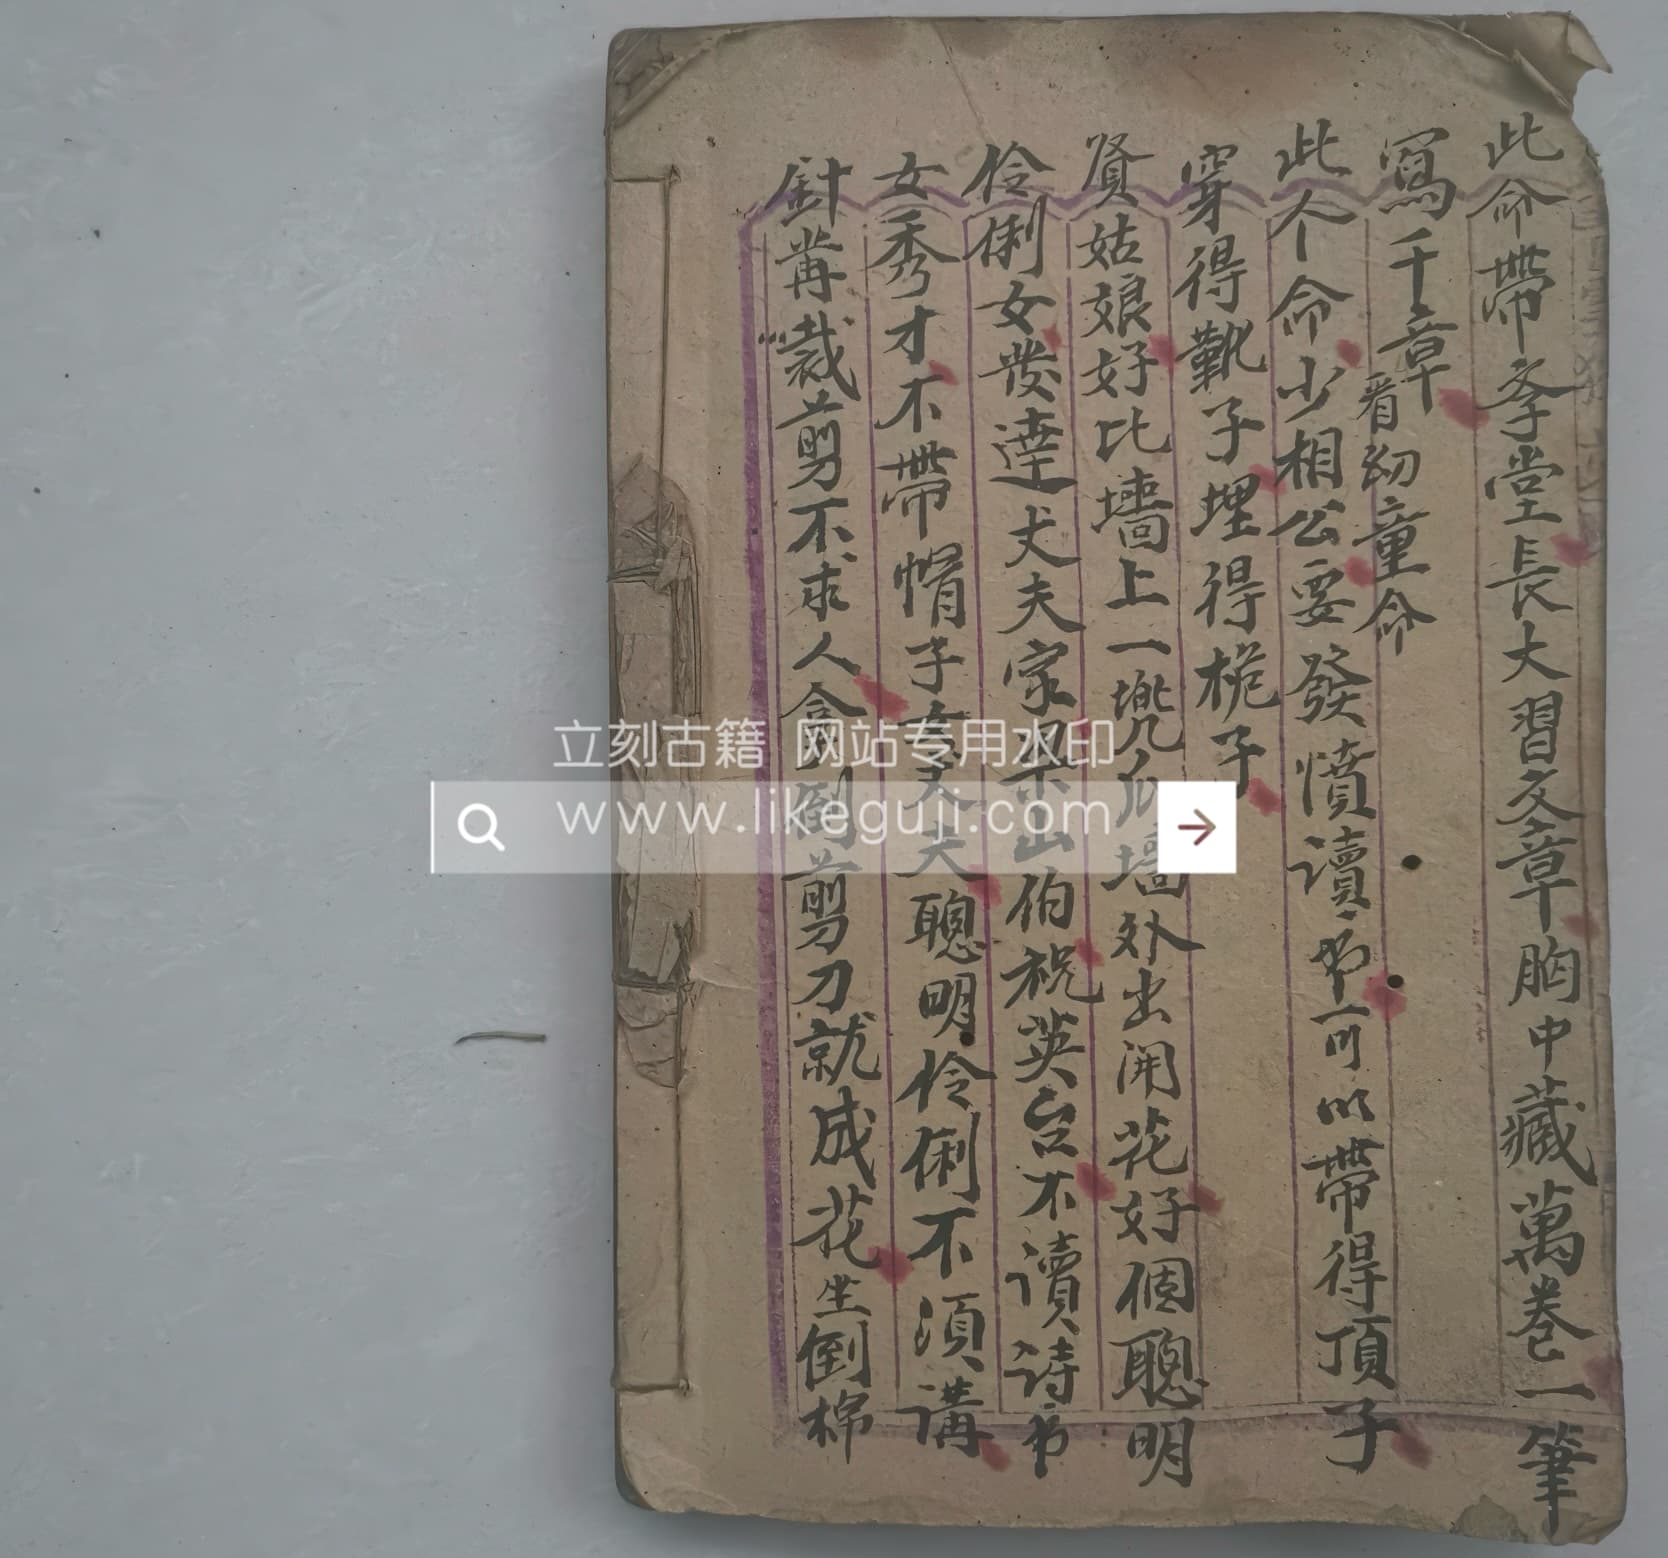 此命帶孝堂長大習文章胸中藏萬卷一筆
寫千章
看幼童命
此个命少相公要發憤讀书可以帶得頂子
穿得靴子埋得桅子
賢姑娘好比墻上一兠瓜墻外出開花好個聰明
伶俐女發達丈夫家山伯祝英台不讀詩书
女秀才不帶帽子女丈夫聰明伶俐不須講
針黹裁剪不求人倒剪刀就成花坐倒棉
立刻古籍 网站专用水印
www.likeguji.com